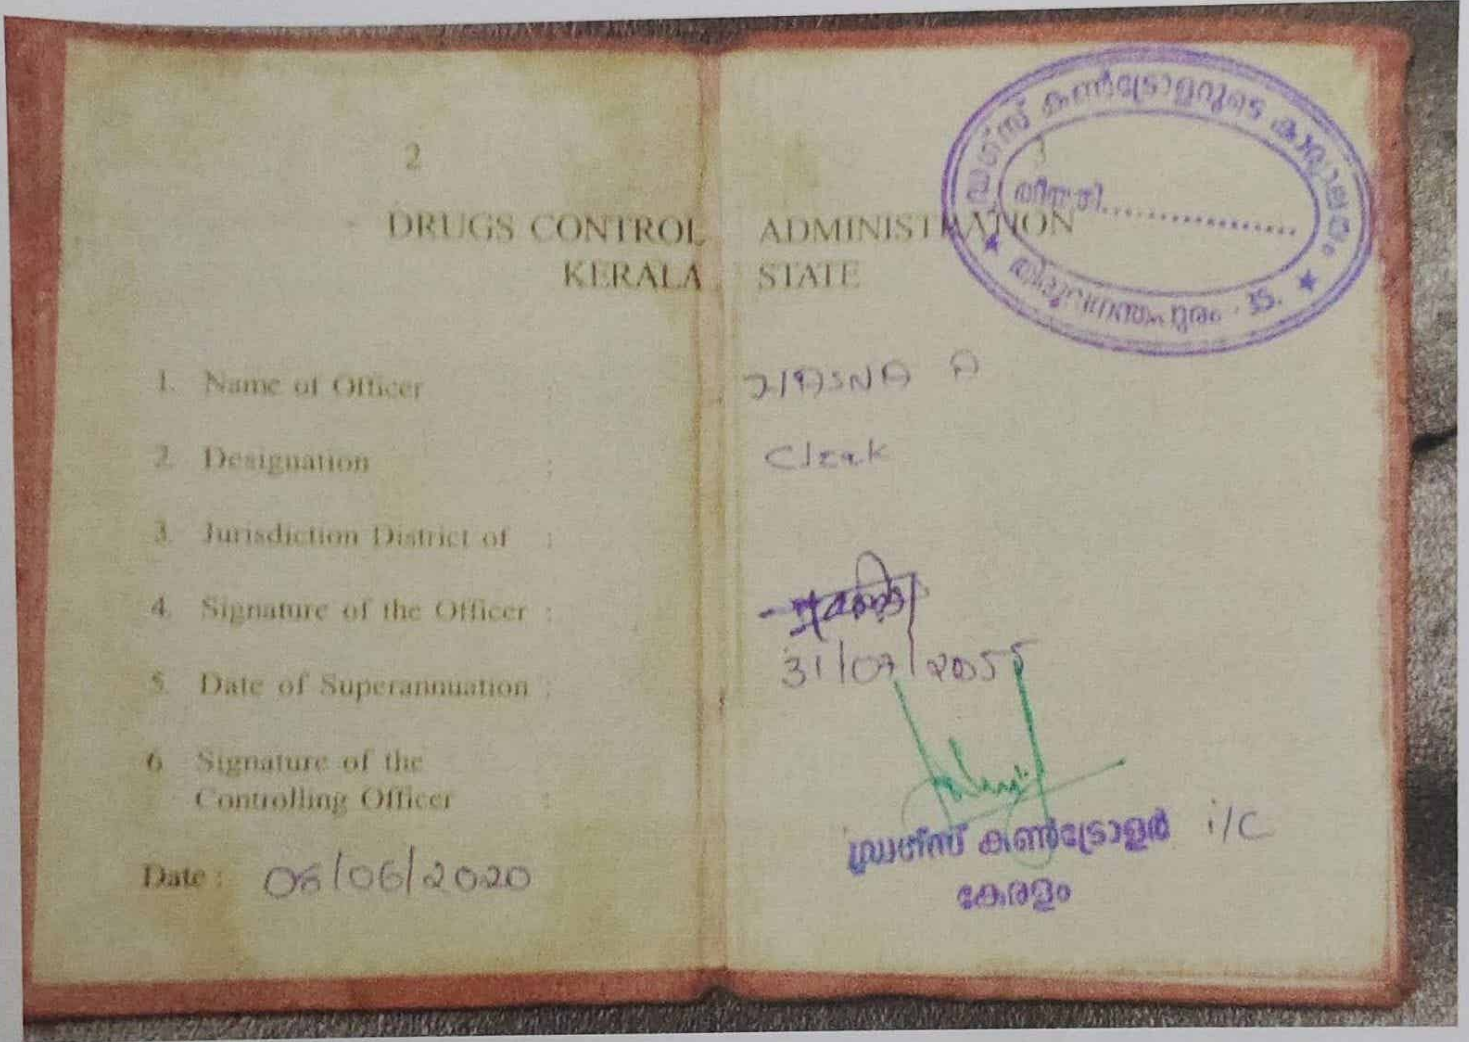 2
3
DRUGS CONTROL ADMINISTRATION
KERALA STATE
ഡ്രഗ്സ് കൺട്രോളറുടെ കാര്യാലയം
തീയതി..................
തിരുവനന്തപുരം - 35.
1. Name of Officer : A
2. Designation : Clerk
3. Jurisdiction District of :
4. Signature of the Officer :
5. Date of Superannuation : 31/07/2055
6. Signature of the
Controlling Officer :
ഡ്രഗ്സ് കൺട്രോളർ i/c
കേരളം
Date : 06/06/2020